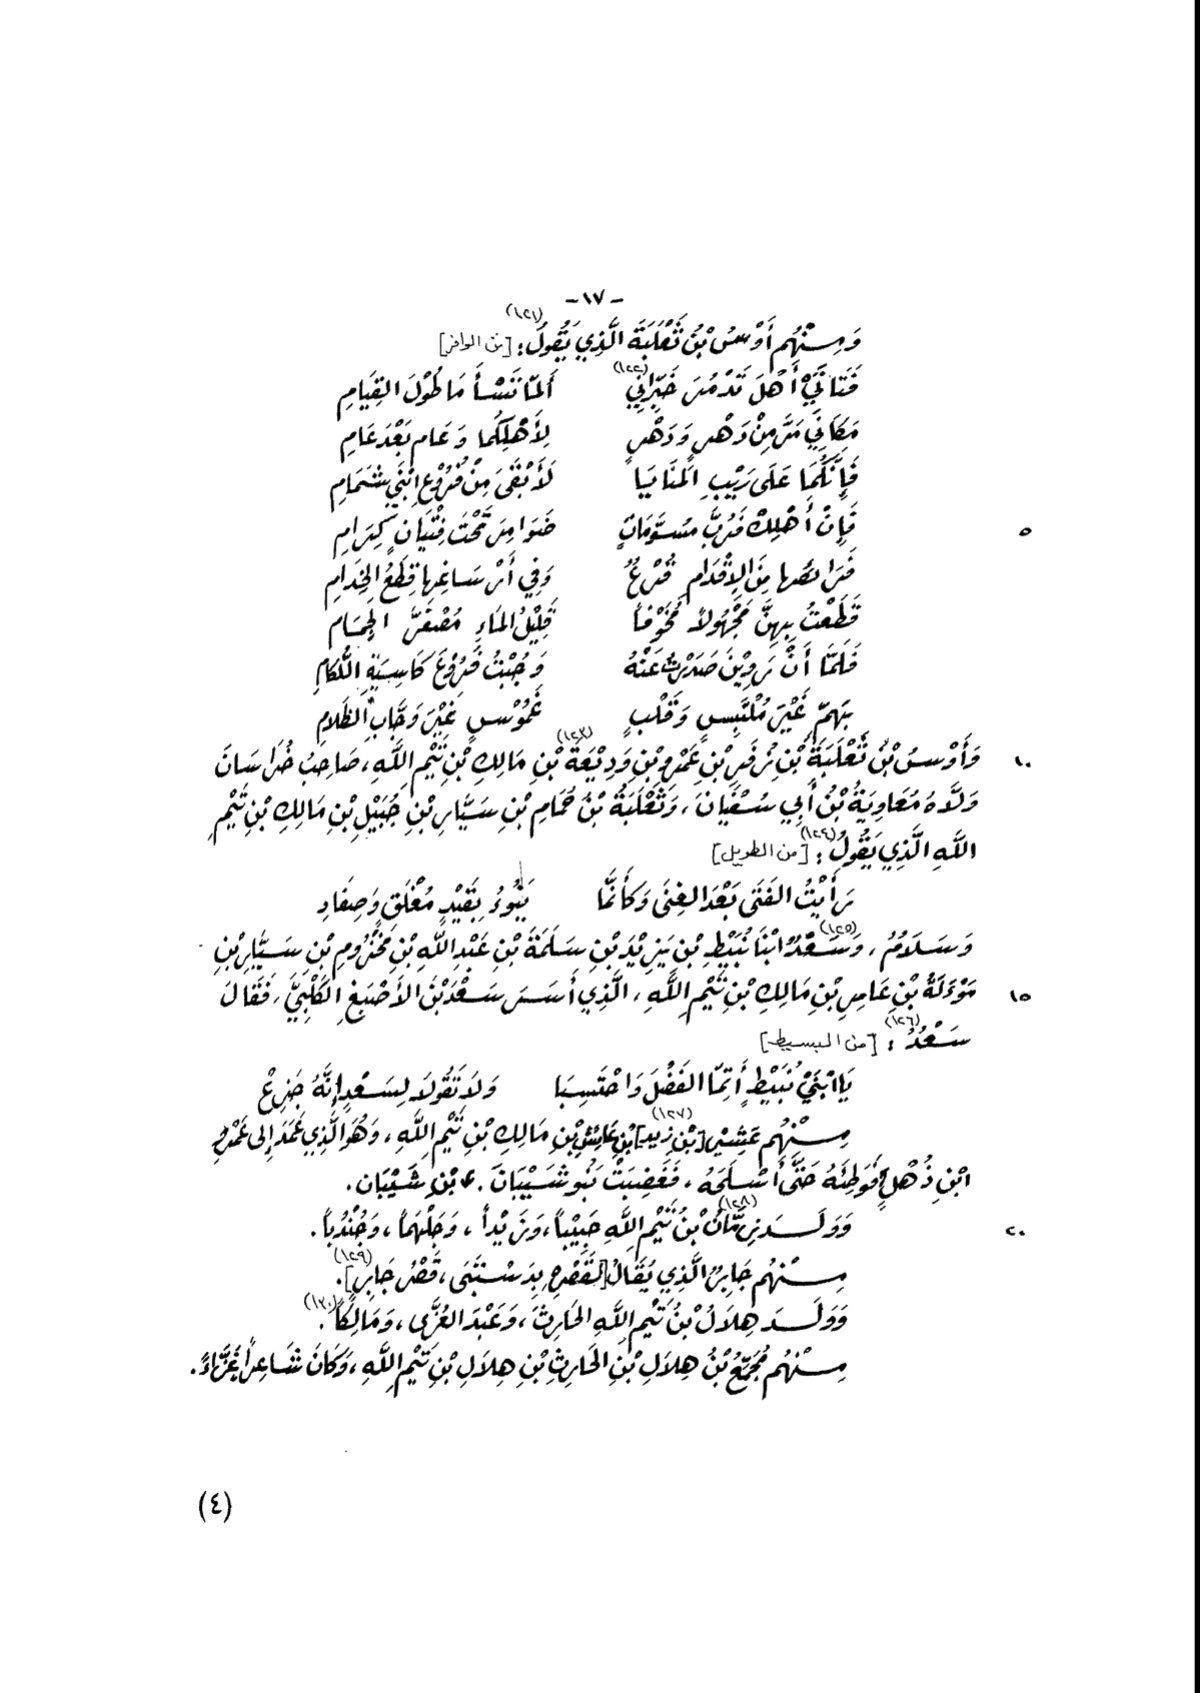 -١٧-
وَمِنْهُم أَوْسُ بْنُ ثَعْلَبَةَ الَّذِي يَقُولُ(١٢١): [من الوافر]
فَتَاتَيْ أَهْلَ تَدْمُرَ خَبِّرَانِي(١٢٢) أَلَمَّا تَسْأَمَا طُولَ القِيَامِ
مَكَانِي مَرَّ مِنْ دَهْرٍ وَدَهْرٍ لِأَهْلِكُمَا وَعَامٍ بَعْدَ عَامِ
فَإِنَّكُمَا عَلَى رَيْبِ المَنَايَا لَأَبْقَى مِنْ فُرُوْعِ ابْنَيْ شَمَامِ
٥ فَإِنْ أَهْلِكْ فَرُبَّ مُسَوَّمَاتٍ ضَوَامِرَ تَحْتَ فِتْيَانٍ كِرَامِ
فَرَائصُها مِنَ الإِقْدَامِ فُرْعٌ وَفِي أَرْسَاغِها قِطَعُ الخِدَامِ
قَطَعْتُ بِهِنَّ مَجْهُولاً مَخُوْفاً قَلِيْلُ المَاءِ مُصْفَرَّ الجِمَامِ
فَلَمَّا أَنْ رَوِيْنَ صَدَرْتُ عَنْهُ وَجُبْتُ فُرُوْعَ كَاسِيَةِ الُّلكَامِ
بِهَمٍّ غَيْرَ مُلْتَبِسٍ وَقَلْبٍ غَمُوْسٍ غَيْرَ وَجَّابِ الظَّلامِ
١٠ وَأَوْسُ بْنُ ثَعْلَبَةَ بْنِ زُفَرِ بْنِ عَمْرِو بْنِ وَدِيْعَةَ(١٢٣) بْنِ مَالِكِ بْنِ تَيْمِ اللَّهِ، صَاحِبُ خُرَاسَانَ
وَلَّاهُ مُعَاوِيَةُ بْنُ أَبِي سُفْيَانَ، وَثَعْلَبَةُ بْنُ حُمَامِ بْنِ سَيَّارِ بْنِ جُبَيْلِ بْنِ مَالِكِ بْنِ تَيْمِ
اللَّهِ الَّذِي يَقُولُ(١٢٤): [من الطويل]
رَأَيْتُ الفَتَى بَعْدَ الغِنَى وَكَأَنَّمَا يَنُوءُ بِقَيْدٍ مُغْلَقٍ وَصِفَادِ
وَسَلَامُ، وَسَعْدٌ(١٢٥) ابْنَا نُبَيْطِ بْنِ يَزِيْدَ بْنِ سَلَمَةَ بْنِ عَبْدِ اللَّهِ بْنِ مَخْزُومِ بْنِ سَيَّارِ بْنِ
١٥ مَوْءَلَةَ بْنِ عَامِرِ بْنِ مَالِكِ بْنِ تَيْمِ اللَّهِ، الَّذِي أَسَرَ سَعْدَ بْنَ الأَصْبَغِ الكَلْبِيَّ، فَقَالَ
سَعْدُ(١٢٦): [من البسيط]
يَا ابْنَيْ نُبَيْطٍ أَتِمَّا الفَضْلَ وَاحْتَسِبَا وَلَا تَقُولَا لِسَعْدٍ إِنَّهُ جَزِعْ
مِنْهُم عَنْتَرُ [بْن زيد](١٢٧) بْنِ عَائِشِ بْنِ مَالِكِ بْنِ تَيْمِ اللَّهِ، وَهُوَ الَّذِي عَمَدَ إِلى عَمْرِو
ابْنِ ذُهْلٍ فَوَطِئَهُ حَتَّى أَسْلَحَهُ، فَغَضِبَتْ بَنُو شَيْبَانَ. بْنِ شَيْبَان.
٢٠ وَوَلَدَ زِمَّانُ(١٢٨) بْنُ تَيْمِ اللَّهِ حَبِيْباً، وَزَيْداً، وَجَلْهَماً، وَجُنْدُباً.
مِنْهُم جَابِرٌ الَّذِي يُقَالُ [لقَصْرِهِ بِدَسْتَبَى، قَصْرُ جَابِرٍ](١٢٩).
وَوَلَدَ هِلَالُ بْنُ تَيْمِ اللَّهِ الحَارِثَ، وَعَبْدَ العُزَّى، وَمَالِكاً(١٣٠).
مِنْهُم مُجَمِّعُ بْنُ هِلَالِ بْنِ الحَارِثِ بْنِ هِلَالِ بْنِ تَيْمِ اللَّهِ، وَكَانَ شَاعِراً غَزَّاءً.
(٤)